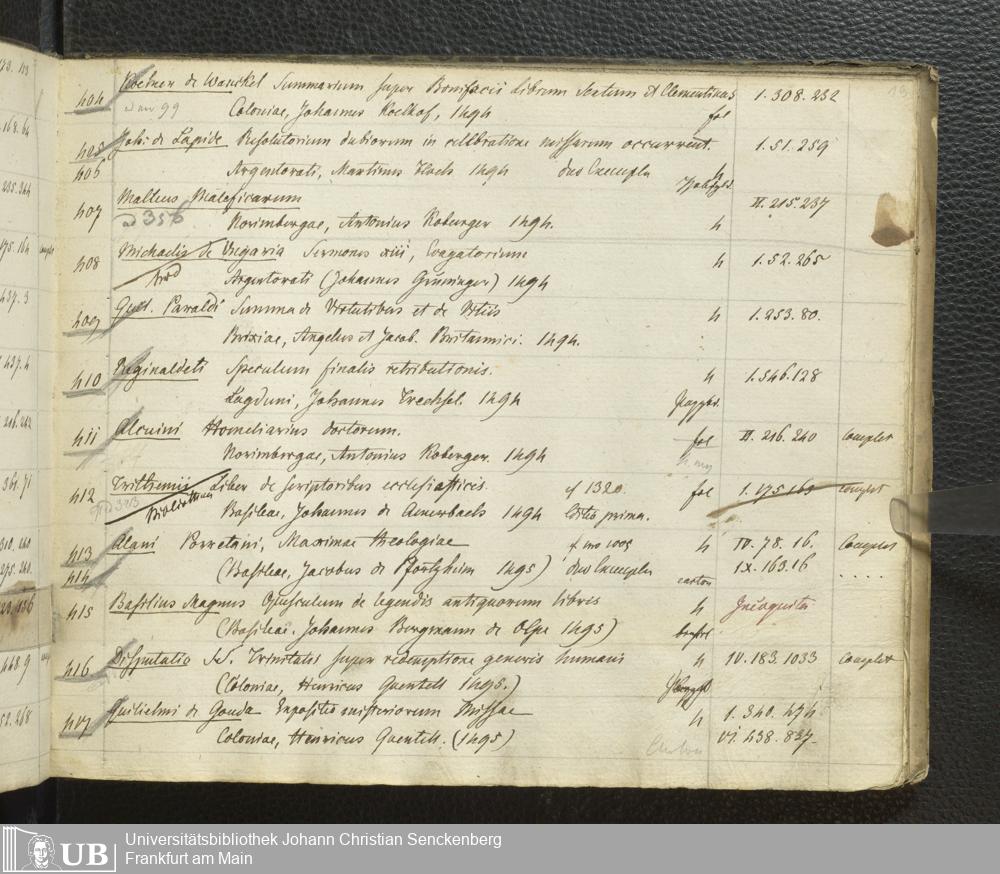 404 Koetner de Wanckel Summarium super Bonifacii librum Sextum et Clementinas 1.308.232
Coloniae, Johannes Koelhof, 1494 fol
405 Joh: de Lapide Resolutorium dubiorum in celebratione missarum occurrent. 1.51.259
406 Argentorati, Martinus Flach 1494 duo Exempla 4
407 Malleus Maleficarum II.215.237
Norimbergae, Antonius Koberger 1494. 4
408 Michaelis de Ungaria Sermones xiii, Evagatorium 4 1.52.265
Argentorati (Johannes Grüninger) 1494
409 Guil. Paraldi Summa de Virtutibus et de Vitiis 4 1.253.80.
Brixiae, Angelus et Jacob. Britannici. 1494.
410 Reginaldeti Speculum finalis retributionis. 4 1.546.128
Lugduni, Johannes Trechsel. 1494
411 Alcuini Homeliarius doctorum. fol II.216.240 complet
Norimbergae, Antonius Koberger. 1494
412 Trithemii Liber de scriptoribus ecclesiasticis. cf 1320. fol 1.175.165 complet
Basileae, Johannes de Amerbach 1494 Editio prima.
413 Alani Porretani, Maximae theologiae 4 IV.78.16. Complet
414 (Basileae, Jacobus de Pfortzheim 1495) duo Exempla carton IX.163.16 . . . .
415 Basilius Magnus Opusculum de legendis antiquorum libris 4 Incognita
(Basileae. Johannes Bergmann de Olpe 1495)
416 Disputatio Sct. Trinitatis super redemptione generis humani 4 IV.183.1033 complet
(Coloniae, Henricus Quentell 1495.)
417 Guilielmi de Gouda Expositio misteriorum Missae 4 1.340.494
Coloniae, Henricus Quentell. (1495) VI.438.837.
UB Universitätsbibliothek Johann Christian Senckenberg
Frankfurt am Main